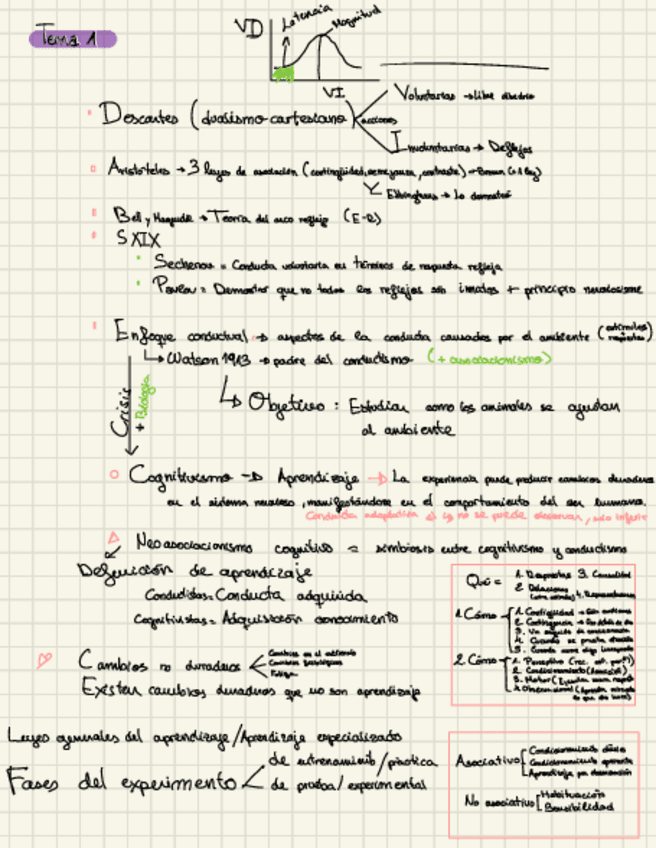 Tema 1
VD
Latencia
Magnitud
VI
Descartes (dualismo cartesiano) acciones
Voluntarias → libre albedrío
Involuntarias → Reflejos
Aristóteles → 3 leyes de asociación (contigüidad, semejanza, contraste) → Brown (+1 ley)
Ebbinghaus → lo demostró
Bell y Magendie → Teoría del arco reflejo (E-R)
S XIX
Sechenov = Conducta voluntaria en términos de respuesta refleja
Pavlov = Demostrar que no todos los reflejos son innatos + principio nerviosisme
Enfoque conductual → aspectos de la conducta causados por el ambiente (estímulos respuestas)
↳ Watson 1913 → padre del conductismo (+ asociacionismo)
Crisis
+ Biología
↳ Objetivo: Estudiar como los animales se ajustan
al ambiente
Cognitivismo → Aprendizaje → La experiencia puede producir cambios duraderos
en el sistema nervioso, manifestándose en el comportamiento del ser humano.
Conducta adaptativa no se puede observar, solo inferir
Neoasociacionismo cognitivo = simbiosis entre cognitivismo y conductismo
Definición de aprendizaje
Conductistas = Conducta adquirida
Cognitivistas = Adquisición conocimiento
Qué = 1. Respuestas 3. Causalidad
2. Relaciones
1 Cómo
1. Contigüidad
2. Contingencia
2 Cómo
1. Perceptivo
2. Condicionamiento
3. Motor
4. Observacional
Cambios no duraderos
Cambios en el estímulo
Cambios fisiológicos
Fatiga
Existen cambios duraderos que no son aprendizaje
Leyes generales del aprendizaje/Aprendizaje especializado
Fases del experimento
de entrenamiento/práctica
de prueba/experimental
Asociativo
Condicionamiento clásico
Condicionamiento operante
Aprendizaje por observación
No asociativo
Habituación
Sensibilidad